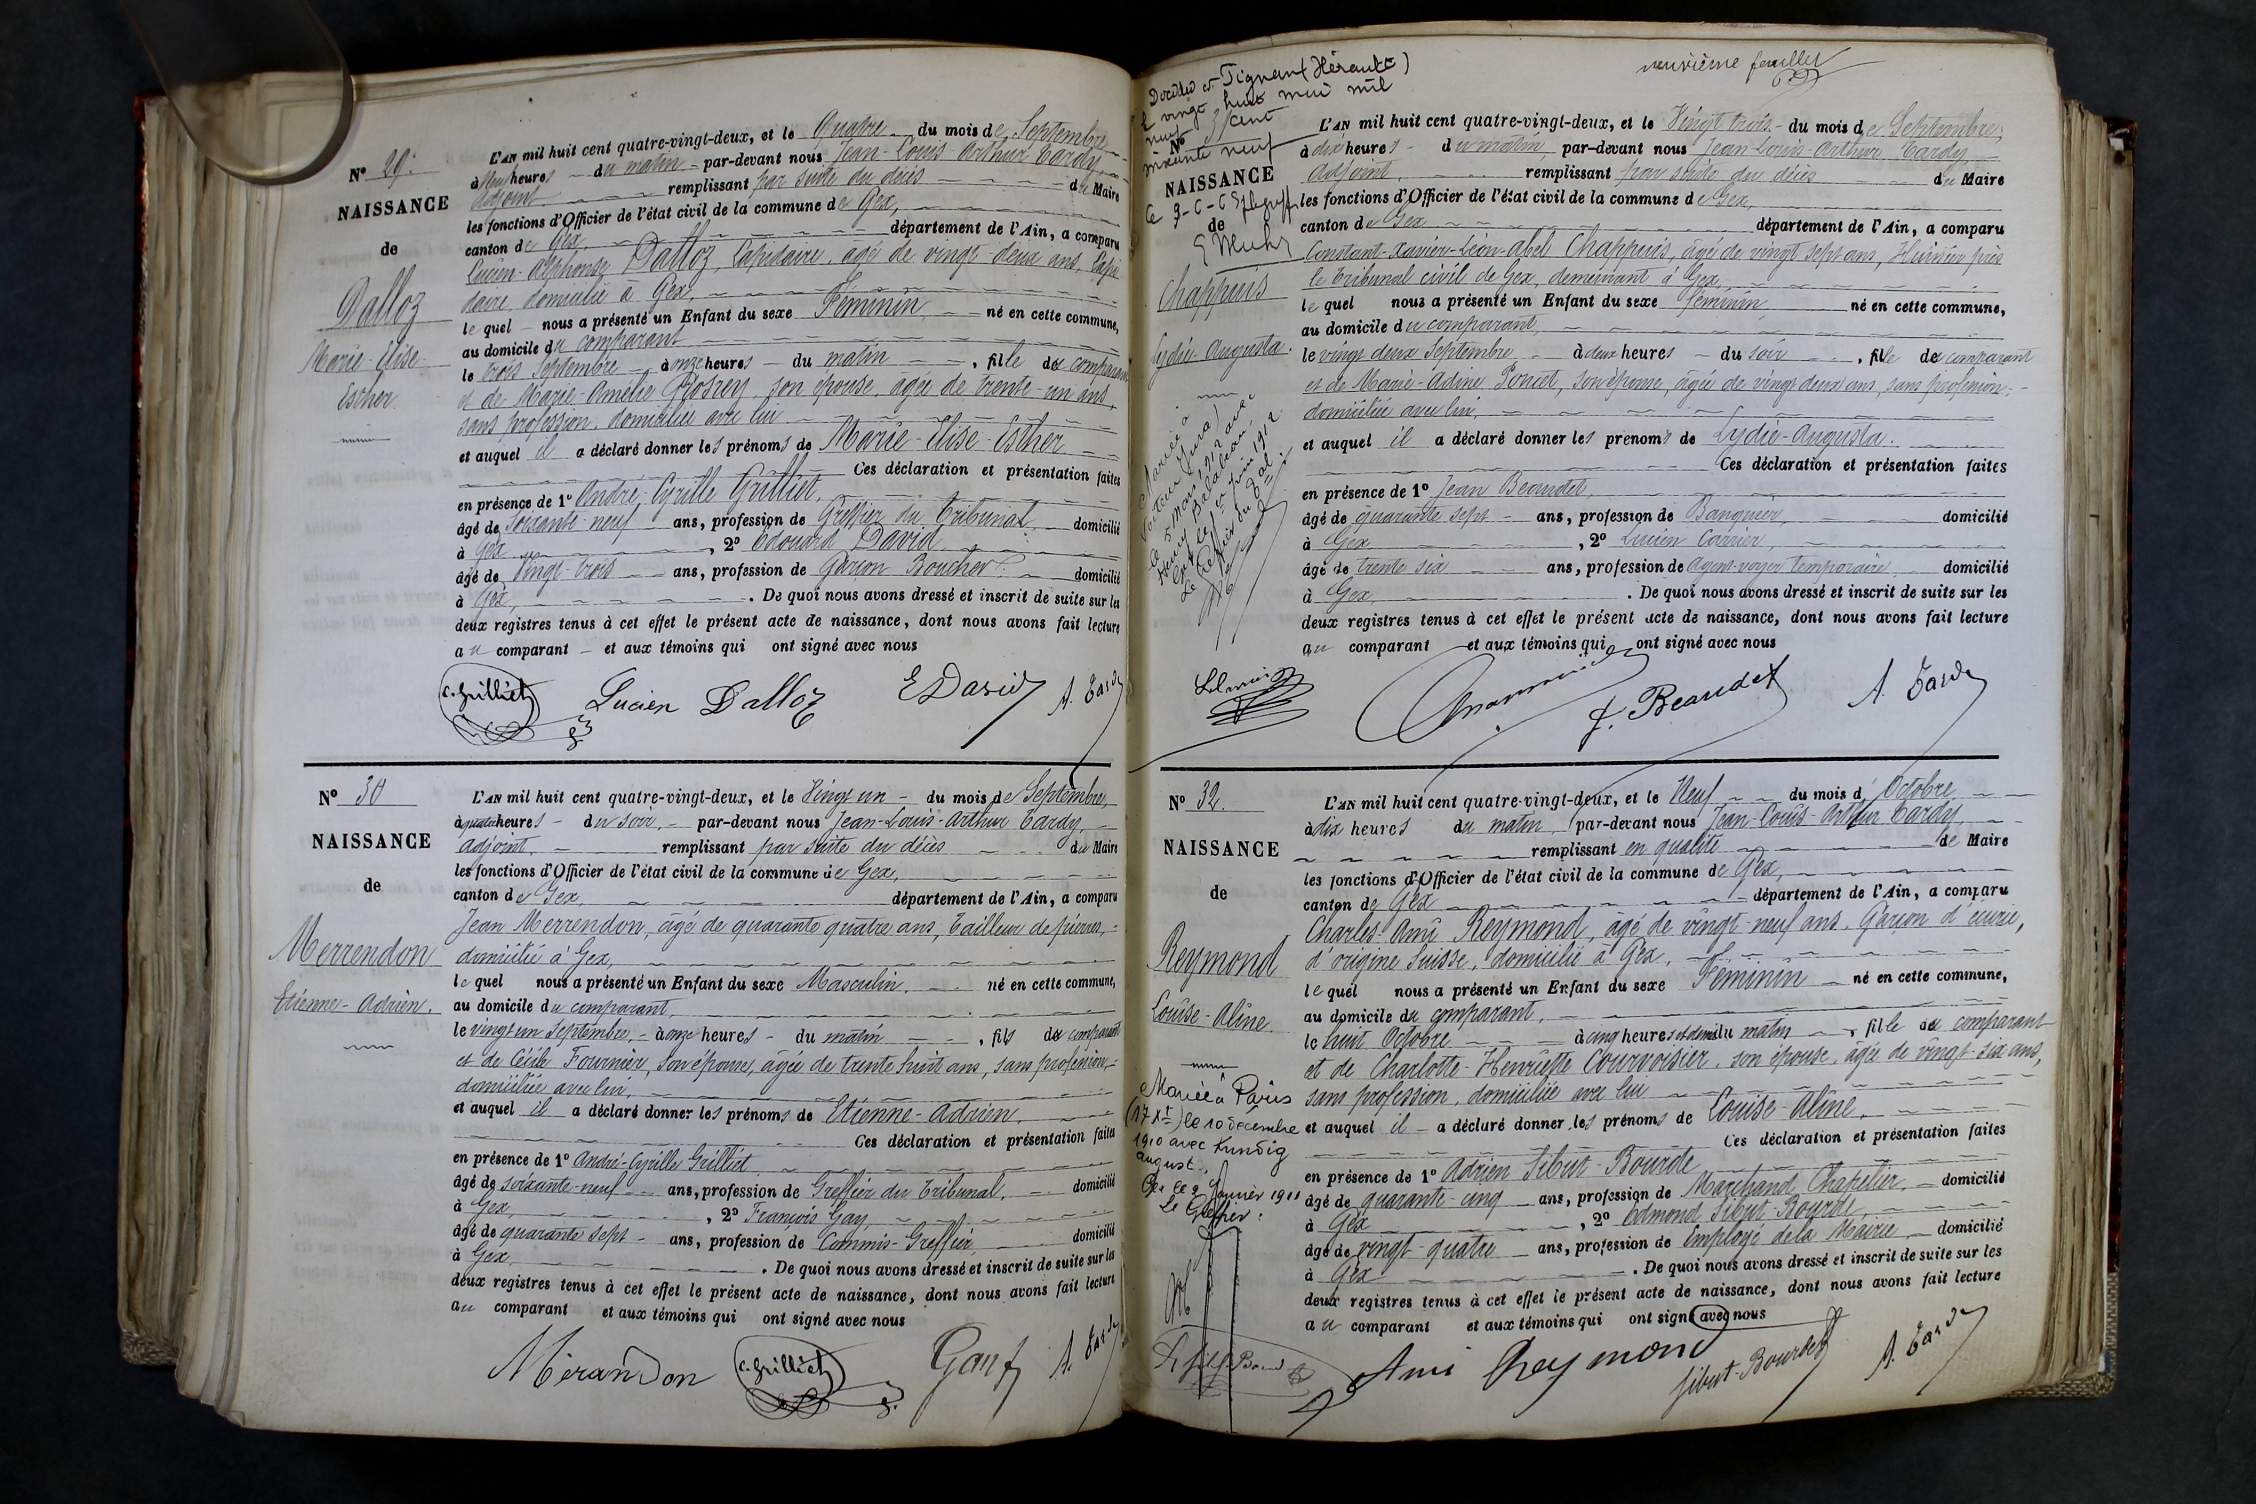 N° 29.
NAISSANCE
de
Dalloz
Marie-Elise-
Esther
L'AN mil huit cent quatre-vingt-deux, et le Quatre du mois de Septembre
à Neuf heures du matin par-devant nous Jean-Louis-Arthur Tardy,
adjoint remplissant par suite du décès du Maire
les fonctions d'Officier de l'état civil de la commune de Gex,
canton de Gex département de l'Ain, a comparu
Lucien-Alphonse Dalloz, Lapidaire, âgé de vingt-deux ans, Lapi-
daire, domicilié à Gex,
le quel nous a présenté un Enfant du sexe Féminin né en cette commune,
au domicile du comparant
le trois Septembre à onze heures du matin, fille du comparant
et de Marie-Amélie Grosrey, son épouse, âgée de trente-un ans,
sans profession, domiciliée avec lui
et auquel il a déclaré donner les prénoms de Marie-Elise-Esther
Ces déclaration et présentation faites
en présence de 1° André-Cyrille Grilliet,
âgé de soixante-neuf ans, profession de Greffier du Tribunal, domicilié
à Gex, 2° Edouard David
âgé de Vingt-trois ans, profession de Garçon Boucher domicilié
à Gex, . De quoi nous avons dressé et inscrit de suite sur les
deux registres tenus à cet effet le présent acte de naissance, dont nous avons fait lecture
au comparant et aux témoins qui ont signé avec nous
C. Grilliet Lucien Dalloz E David A. Tardy
N° 30
NAISSANCE
de
Merrendon
Etienne-Adrien.
L'AN mil huit cent quatre-vingt-deux, et le Vingt un du mois de Septembre,
à quatre heures du soir, par-devant nous Jean-Louis-Arthur Tardy,
adjoint, remplissant par suite du décès du Maire
les fonctions d'Officier de l'état civil de la commune de Gex,
canton de Gex département de l'Ain, a comparu
Jean Merrendon, âgé de quarante quatre ans, Tailleur de pierres,
domicilié à Gex,
le quel nous a présenté un Enfant du sexe Masculin, né en cette commune,
au domicile du comparant,
le vingt un Septembre, à onze heures du matin, fils du comparant
et de Cécile Fournier, son épouse, âgée de trente huit ans, sans profession,
domiciliée avec lui,
et auquel il a déclaré donner les prénoms de Etienne-Adrien,
Ces déclaration et présentation faites
en présence de 1° André-Cyrille Grilliet
âgé de soixante-neuf ans, profession de Greffier du Tribunal, domicilié
à Gex, 2° François Gay,
âgé de quarante sept ans, profession de Commis-Greffier, domicilié
à Gex, . De quoi nous avons dressé et inscrit de suite sur les
deux registres tenus à cet effet le présent acte de naissance, dont nous avons fait lecture
au comparant et aux témoins qui ont signé avec nous
Mérandon C. Grilliet Gay A. Tardy
neuvième feuillet
Décédée à Tignan (Hérault)
le vingt huit mai mil
neuf cent
soixante neuf
N°
NAISSANCE
de
Chappuis
Lydie-Augusta.
Mariée à
(Jura)
le 5 Mars 1912 avec
Gex le 1er juin 1912
Le Greffier du Tal:
L'AN mil huit cent quatre-vingt-deux, et le Vingt trois du mois de Septembre,
à dix heures du matin, par-devant nous Jean-Louis-Arthur Tardy,
adjoint, remplissant par suite du décès du Maire
les fonctions d'Officier de l'état civil de la commune de Gex,
canton de Gex département de l'Ain, a comparu
Constant-Xavier-Léon-Abel Chappuis, âgé de vingt sept ans, Huissier près
le Tribunal civil de Gex, demeurant à Gex,
le quel nous a présenté un Enfant du sexe féminin, né en cette commune,
au domicile du comparant,
le vingt deux Septembre à deux heures du soir, fille du comparant
et de Marie-Adine Poncet, son épouse, âgée de vingt deux ans, sans profession,
domiciliée avec lui,
et auquel il a déclaré donner les prénoms de Lydie-Augusta.
Ces déclaration et présentation faites
en présence de 1° Jean Beaudet,
âgé de quarante sept ans, profession de Banquier, domicilié
à Gex, 2° Lucien Carrier,
âgé de trente six ans, profession de Agent-voyer temporaire domicilié
à Gex . De quoi nous avons dressé et inscrit de suite sur les
deux registres tenus à cet effet le présent acte de naissance, dont nous avons fait lecture
au comparant et aux témoins qui ont signé avec nous
J. Beaudet A. Tardy
N° 32.
NAISSANCE
de
Reymond
Louise-Aline
Mariée à Paris
(17 Xt) le 10 décembre
1910 avec Kundig
August.
Gex le 2 Janvier 1911
Le Greffier:
L'AN mil huit cent quatre-vingt-deux, et le Neuf du mois d'Octobre
à dix heures du matin, par-devant nous Jean-Louis-Arthur Tardy,
remplissant en qualité de Maire
les fonctions d'Officier de l'état civil de la commune de Gex,
canton de Gex département de l'Ain, a comparu
Charles Ami Reymond, âgé de vingt-neuf ans, Garçon d'écurie,
d'origine Suisse, domicilié à Gex,
le quel nous a présenté un Enfant du sexe Féminin né en cette commune,
au domicile du comparant,
le huit Octobre à cinq heures et demi du matin, fille du comparant
et de Charlotte-Henriette Courvoisier, son épouse, âgée de vingt-six ans,
sans profession, domiciliée avec lui
et auquel il a déclaré donner les prénoms de Louise-Aline,
Ces déclaration et présentation faites
en présence de 1° Adrien Sibut-Bourde
âgé de quarante-cinq ans, profession de Marchand Chapelier, domicilié
à Gex, 2° Edmond Sibut-Bourde,
âgé de vingt-quatre ans, profession de Employé de la Mairie domicilié
à Gex . De quoi nous avons dressé et inscrit de suite sur les
deux registres tenus à cet effet le présent acte de naissance, dont nous avons fait lecture
au comparant et aux témoins qui ont signé avec nous
Ami Reymond Sibut-Bourde A. Tardy